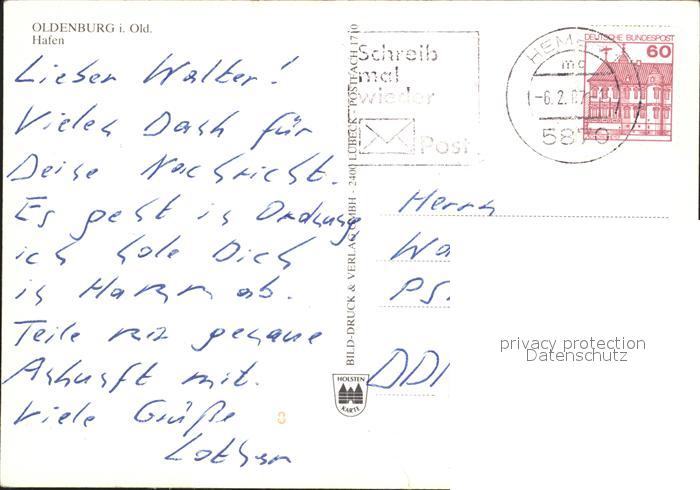 OLDENBURG i. Old.
Hafen
Lieber Walter!
Vielen Dank für
Deine Nachricht.
Es geht in Ordnung
ich hole Dich
in Hamm ab.
Teile mir genaue
Ankunft mit.
Viele Grüße
Lothar
BILD-DRUCK & VERLAG GMBH - 2400 LÜBECK - POSTFACH 1710
HOLSTEN
KARTE
Schreib
mal
wieder
Post
HEM
-6.2.87
5870
DEUTSCHE BUNDESPOST
60
Herrn
Wa
DDR
privacy protection
Datenschutz